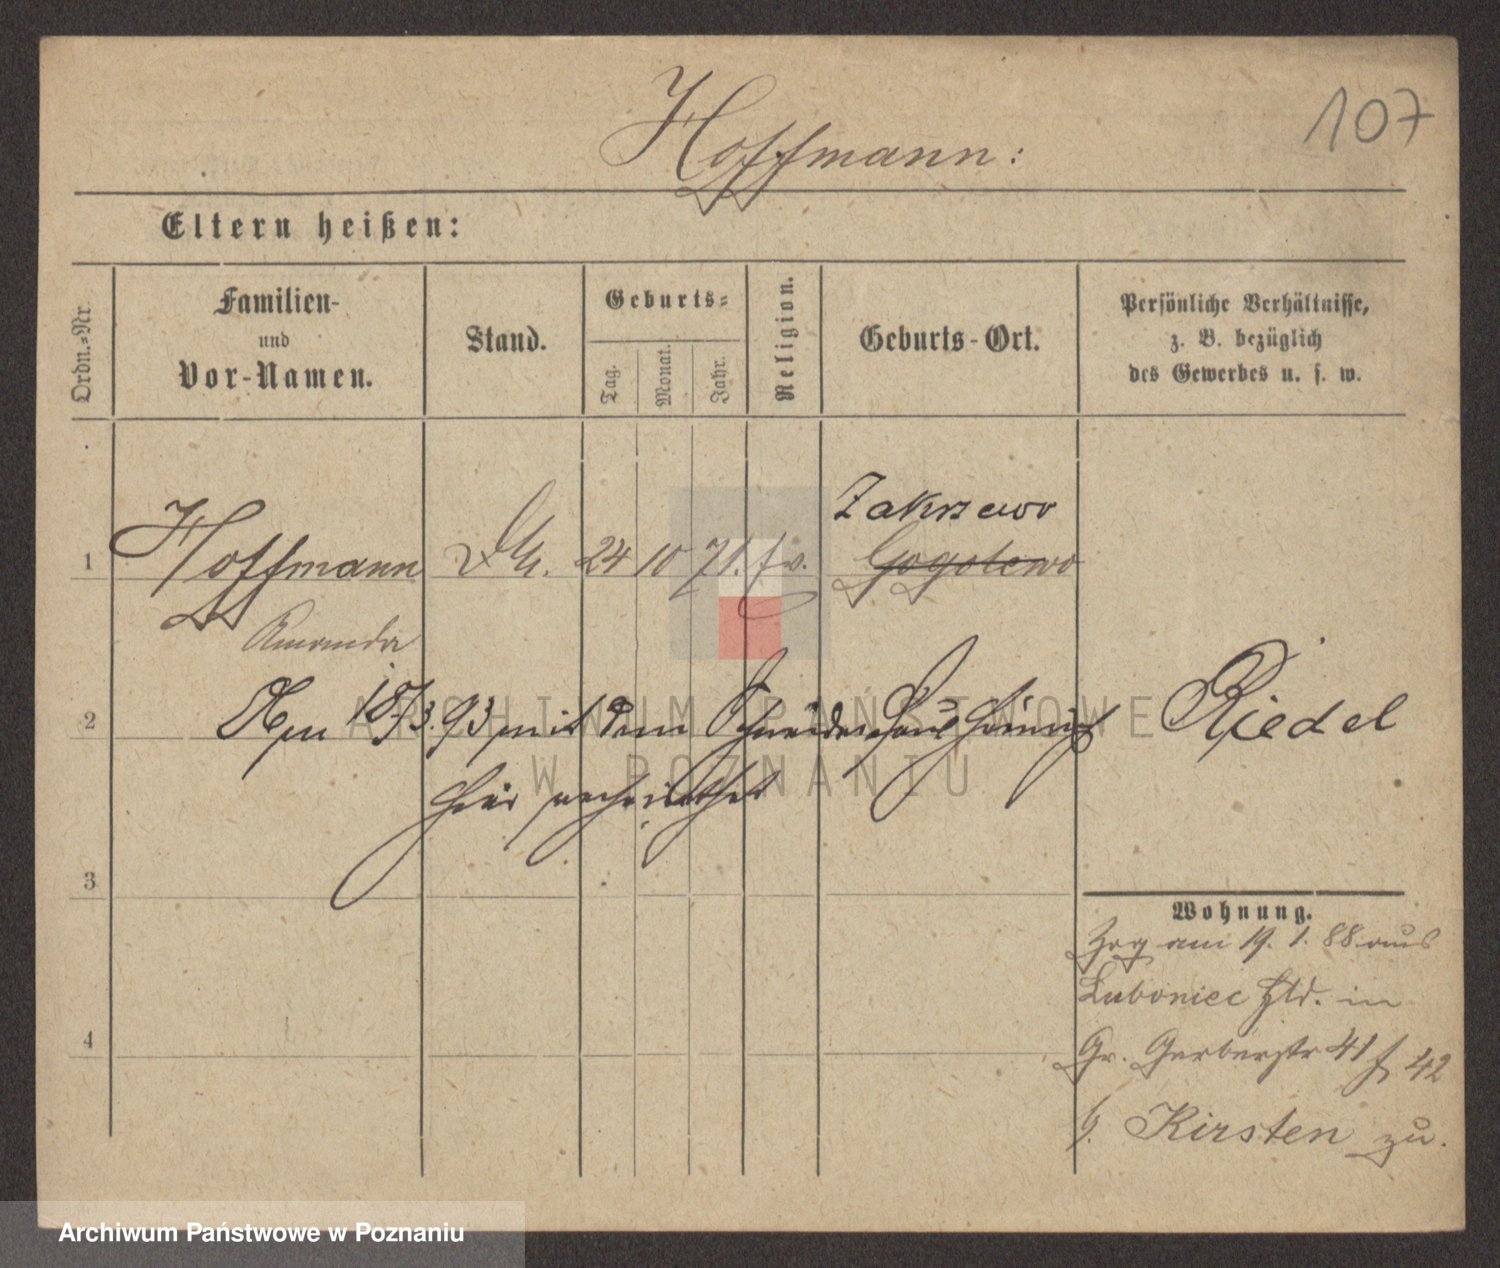 Hoffmann:
107
Eltern heißen:
Ordn.-Nr.
Familien-
und
Vor-Namen.
Stand.
Geburts-
Tag.
Monat.
Jahr.
Religion.
Geburts-Ort.
Persönliche Verhältnisse,
z. B. bezüglich
des Gewerbes u. s. w.
Zakrzewo
1 Hoffmann 24 10 71. Gogolewo
Amanda
2 18/3. 93 mit dem Schneider Paul Riedel
hier verheirathet
ARCHIWUM PAŃSTWOWE
W POZNANIU
3
Wohnung.
Zog am 19. 1. 88 aus
Luboniec in
4
Gr. Gerberstr 41 42
b. Kirsten zu.
Archiwum Państwowe w Poznaniu